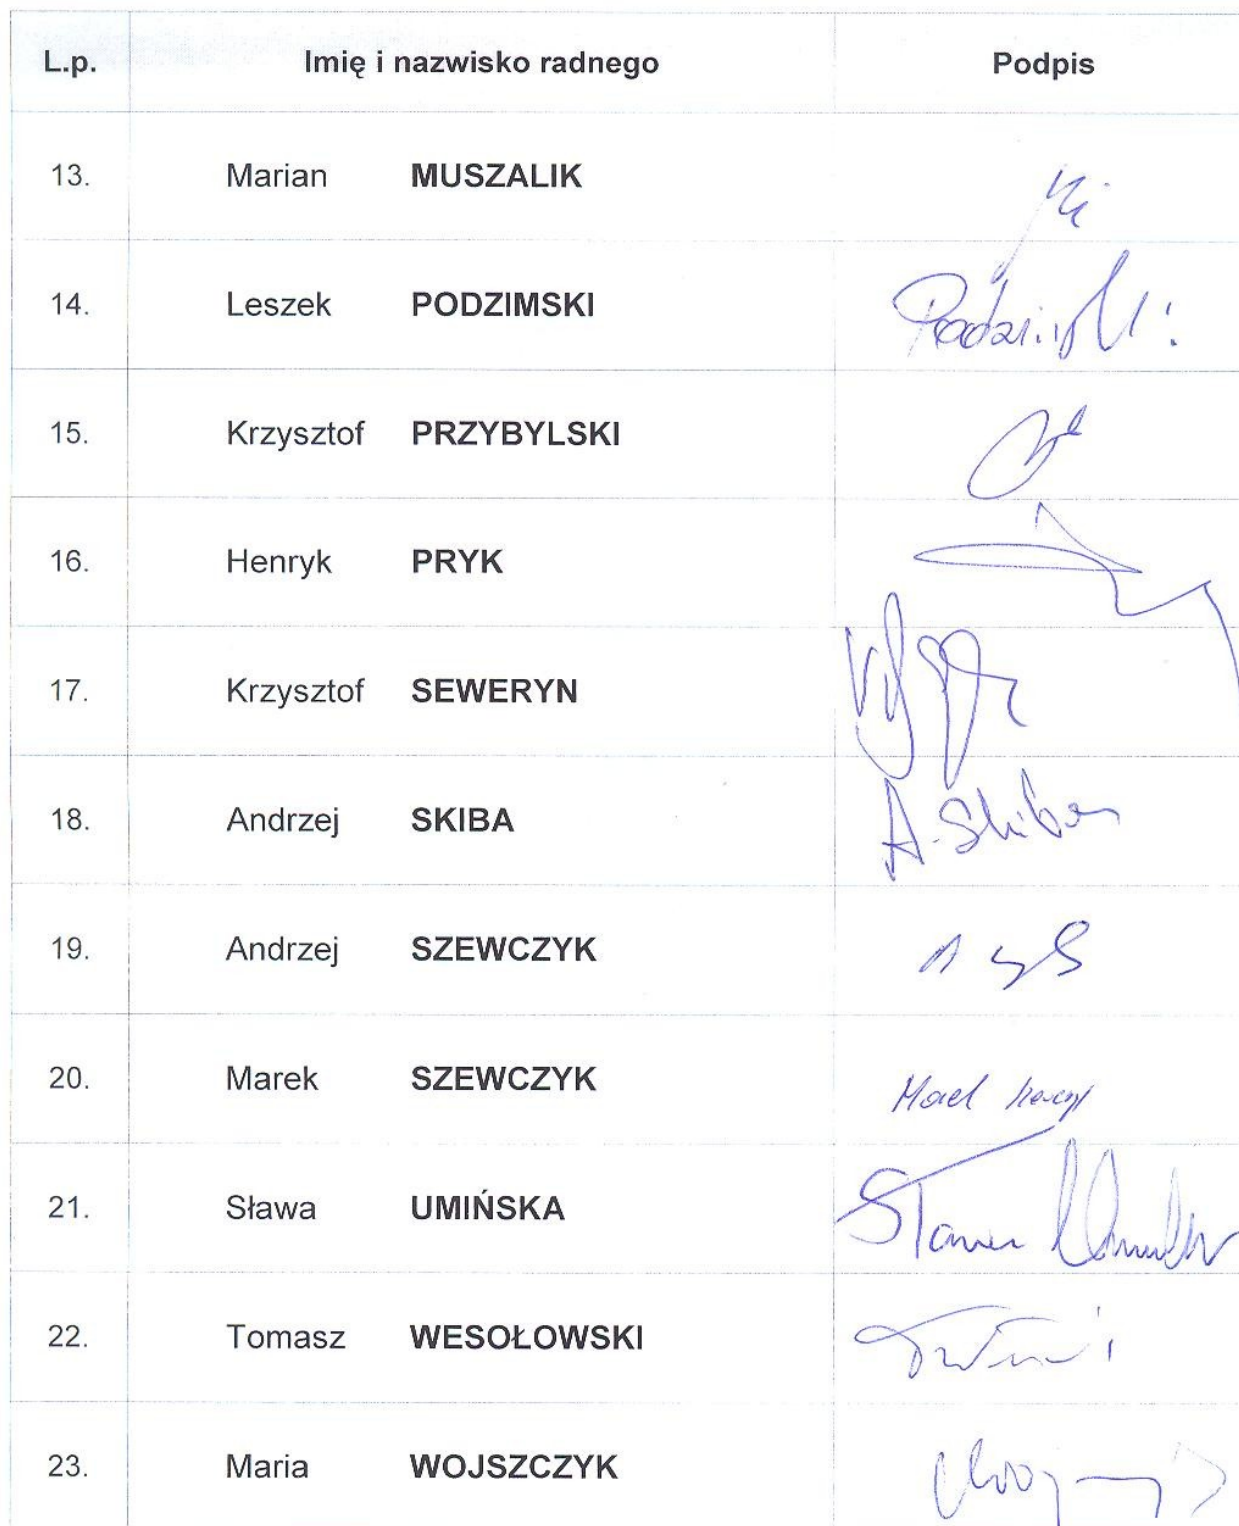 L.p. Imię i nazwisko radnego Podpis
13. Marian MUSZALIK
14. Leszek PODZIMSKI
15. Krzysztof PRZYBYLSKI
16. Henryk PRYK
17. Krzysztof SEWERYN
18. Andrzej SKIBA A. Skiba
19. Andrzej SZEWCZYK
20. Marek SZEWCZYK
21. Sława UMIŃSKA
22. Tomasz WESOŁOWSKI
23. Maria WOJSZCZYK